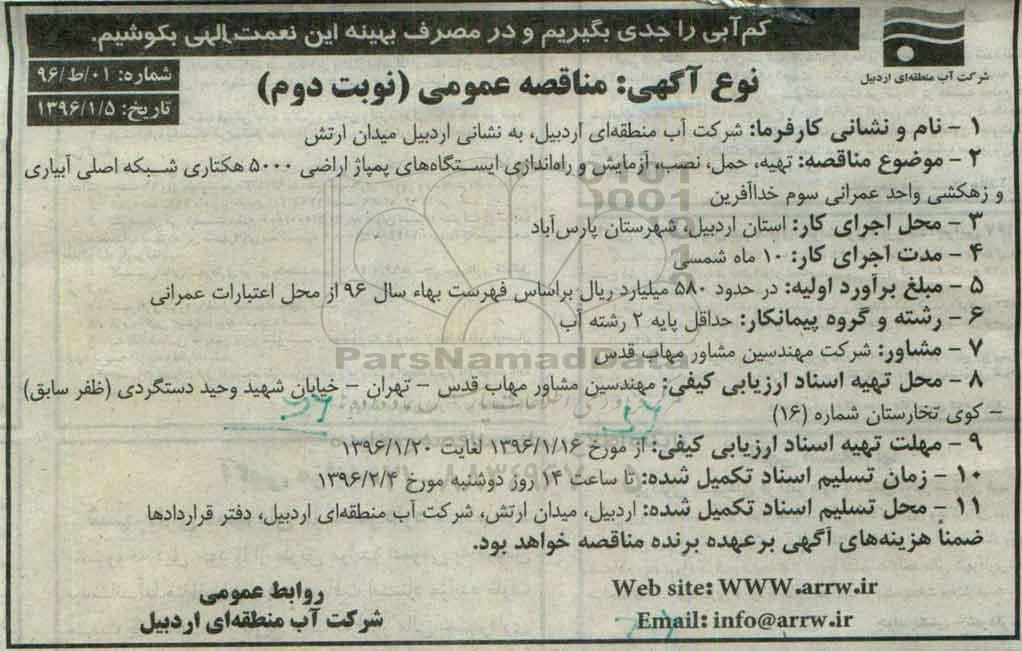 کم‌آبی را جدی بگیریم و در مصرف بهینه این نعمت الهی بکوشیم.
شرکت آب منطقه‌ای اردبیل
شماره: ۰۱/ط/۹۶
تاریخ: ۱۳۹۶/۱/۵
نوع آگهی: مناقصه عمومی (نوبت دوم)
۱ - نام و نشانی کارفرما: شرکت آب منطقه‌ای اردبیل، به نشانی اردبیل میدان ارتش
۲ - موضوع مناقصه: تهیه، حمل، نصب، آزمایش و راه‌اندازی ایستگاه‌های پمپاژ اراضی ۵۰۰۰ هکتاری شبکه اصلی آبیاری
و زهکشی واحد عمرانی سوم خداآفرین
۳ - محل اجرای کار: استان اردبیل، شهرستان پارس‌آباد
۴ - مدت اجرای کار: ۱۰ ماه شمسی
۵ - مبلغ برآورد اولیه: در حدود ۵۸۰ میلیارد ریال براساس فهرست بهاء سال ۹۶ از محل اعتبارات عمرانی
۶ - رشته و گروه پیمانکار: حداقل پایه ۲ رشته آب
۷ - مشاور: شرکت مهندسین مشاور مهاب قدس
ParsNamadData
۸ - محل تهیه اسناد ارزیابی کیفی: مهندسین مشاور مهاب قدس - تهران - خیابان شهید وحید دستگردی (ظفر سابق)
- کوی تخارستان شماره (۱۶)
۹ - مهلت تهیه اسناد ارزیابی کیفی: از مورخ ۱۳۹۶/۱/۱۶ لغایت ۱۳۹۶/۱/۲۰
۱۰ - زمان تسلیم اسناد تکمیل شده: تا ساعت ۱۴ روز دوشنبه مورخ ۱۳۹۶/۲/۴
۱۱ - محل تسلیم اسناد تکمیل شده: اردبیل، میدان ارتش، شرکت آب منطقه‌ای اردبیل، دفتر قراردادها
ضمناً هزینه‌های آگهی برعهده برنده مناقصه خواهد بود.
Web site: WWW.arrw.ir
Email: info@arrw.ir
روابط عمومی
شرکت آب منطقه‌ای اردبیل